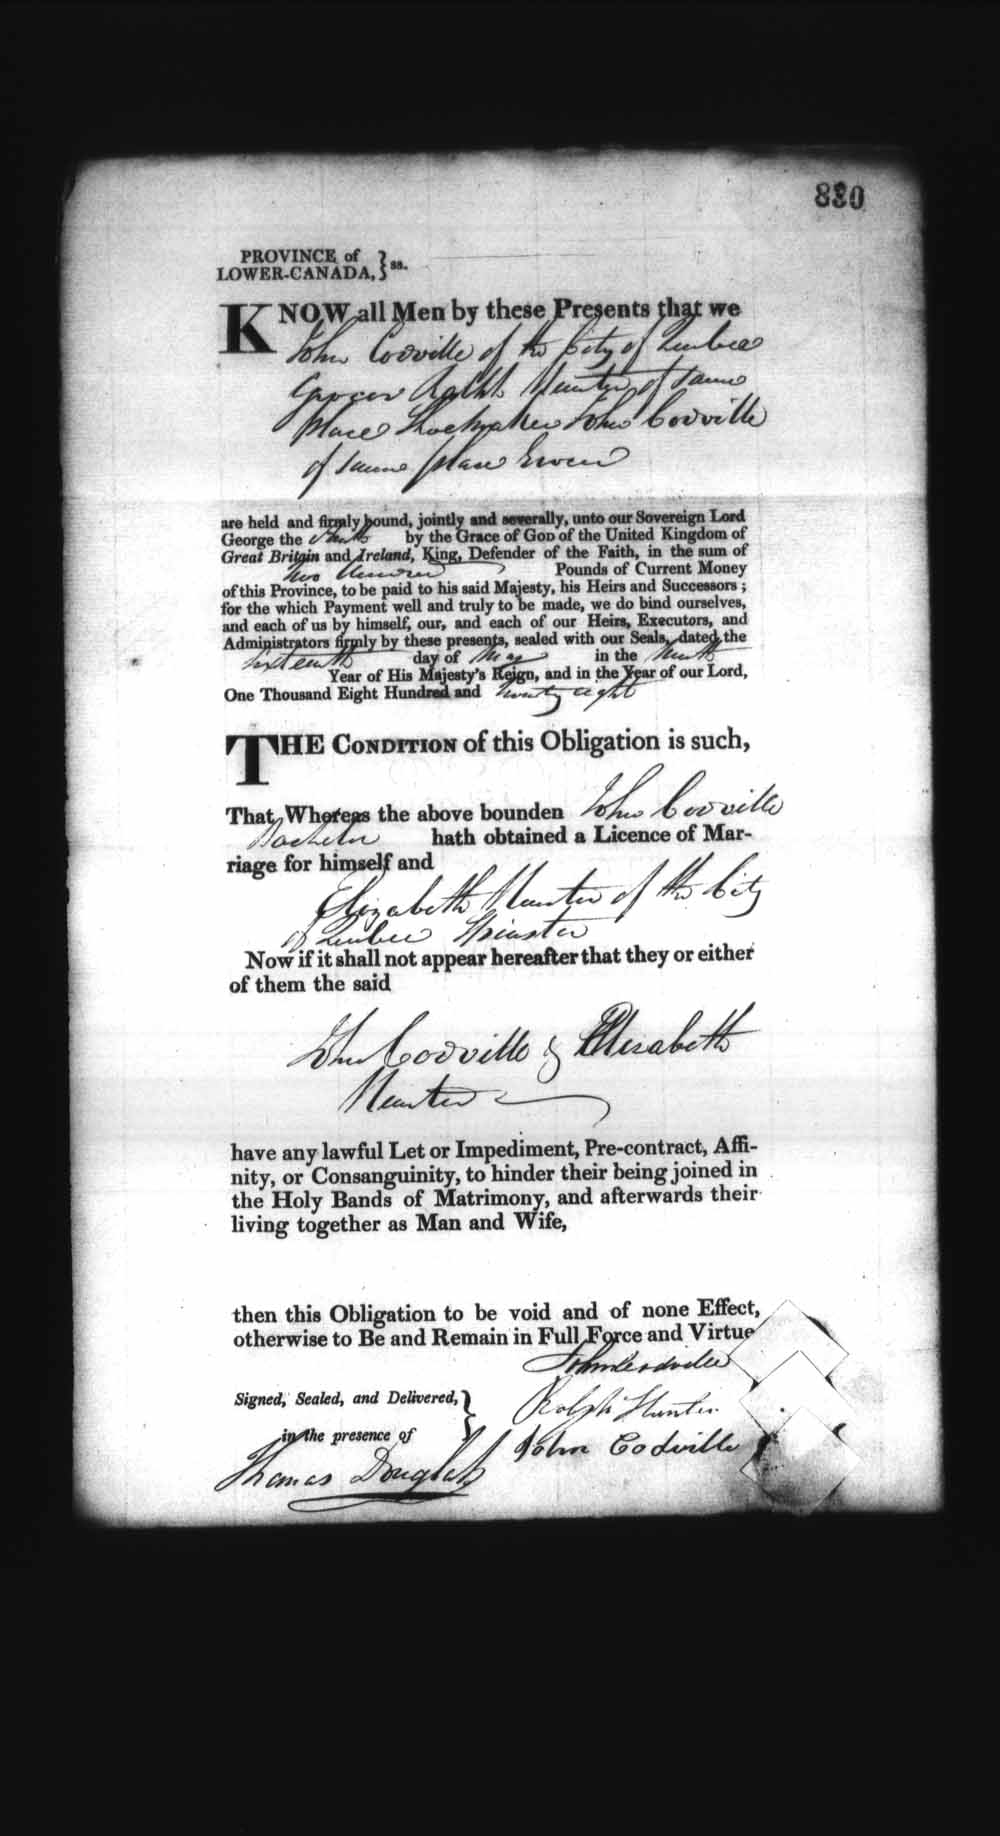 880
PROVINCE of
LOWER-CANADA, } ss.
KNOW all Men by these Presents that we
John Codville of the City of Quebec
Grocer Ralph Hunter of same
Place Shoemaker John Codville
of same place
are held and firmly bound, jointly and severally, unto our Sovereign Lord
George the fourth by the Grace of GOD of the United Kingdom of
Great Britain and Ireland, King, Defender of the Faith, in the sum of
two hundred Pounds of Current Money
of this Province, to be paid to his said Majesty, his Heirs and Successors ;
for the which Payment well and truly to be made, we do bind ourselves,
and each of us by himself, our, and each of our Heirs, Executors, and
Administrators firmly by these presents, sealed with our Seals, dated the
sixteenth day of May in the Ninth
Year of His Majesty's Reign, and in the Year of our Lord,
One Thousand Eight Hundred and twenty eight
THE CONDITION of this Obligation is such,
That Whereas the above bounden John Codville
Bachelor hath obtained a Licence of Mar-
riage for himself and
Elizabeth Hunter of the City
of Quebec Spinster
Now if it shall not appear hereafter that they or either
of them the said
John Codville & Elizabeth
Hunter
have any lawful Let or Impediment, Pre-contract, Affi-
nity, or Consanguinity, to hinder their being joined in
the Holy Bands of Matrimony, and afterwards their
living together as Man and Wife,
then this Obligation to be void and of none Effect,
otherwise to Be and Remain in Full Force and Virtue
John Codville
Signed, Sealed, and Delivered, }
Ralph Hunter
in the presence of
John Codville
Thomas Douglass